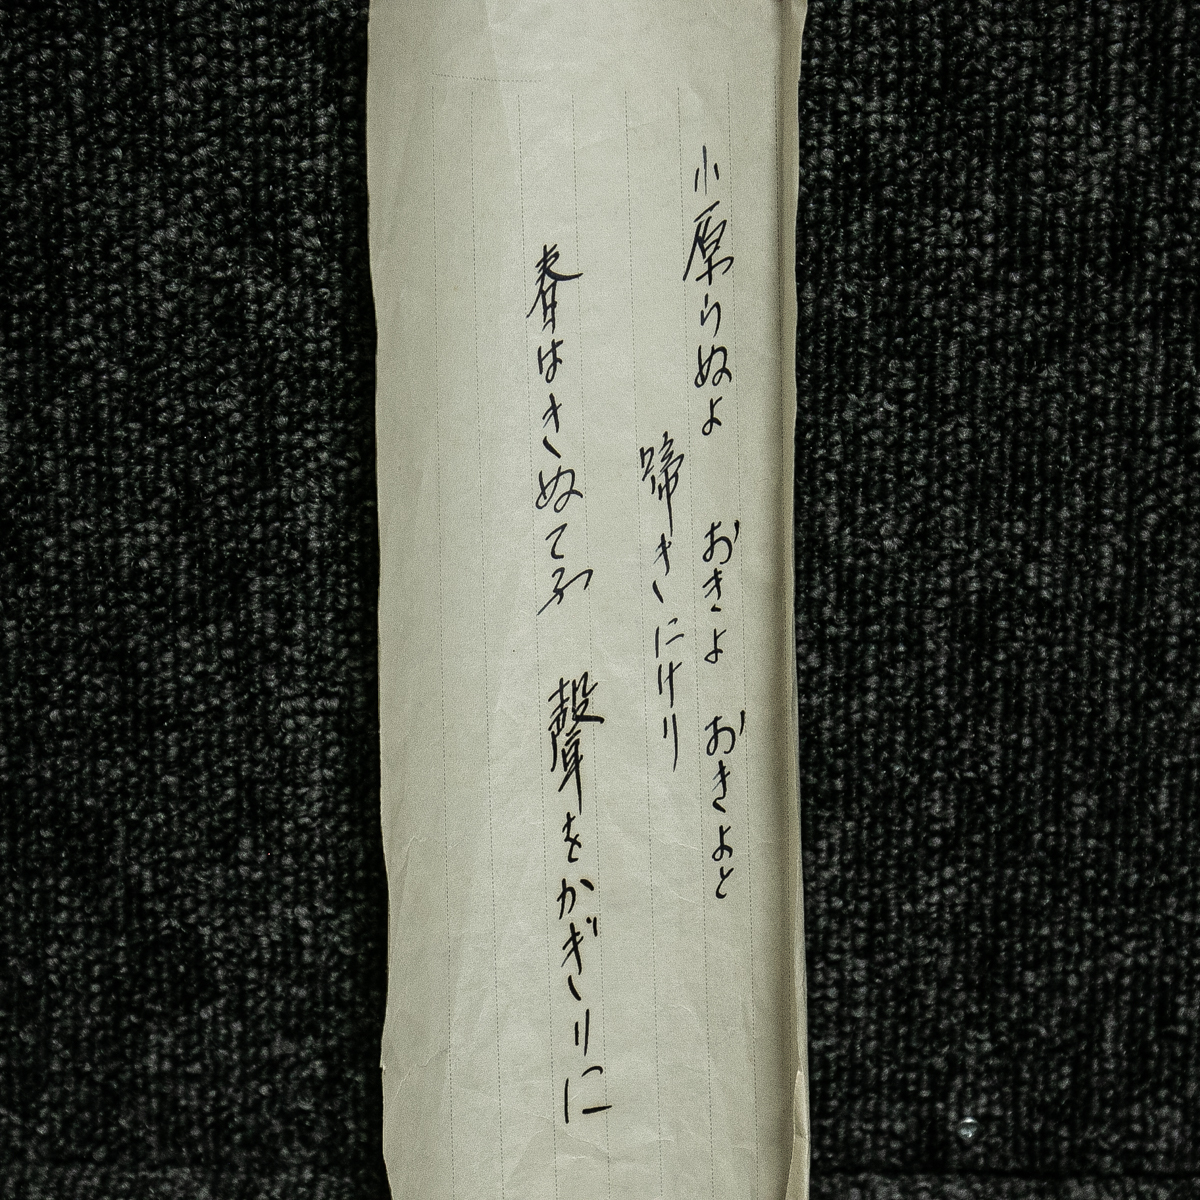 小原らぬよ　おきよ　おきよと
啼きにけり
春はきぬてふ　聲をかぎりに